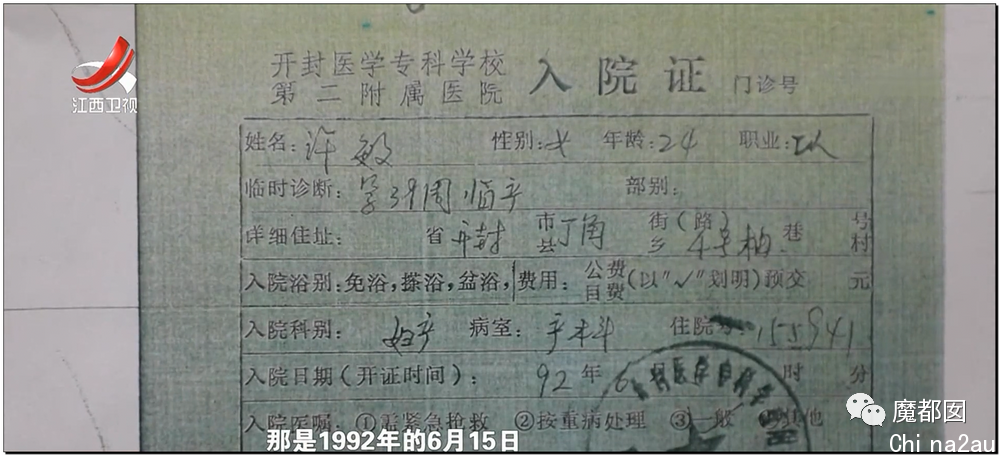 江西卫视
开封医学专科学校
第二附属医院 入院证 门诊号
姓名: 许敏 性别: 女 年龄: 24 职业: 工人
临时诊断: 孕39周临产 部别:
详细住址: 省 开封 市县 丁角 街(路)乡 巷 号村
入院浴别: 免浴,搽浴,盆浴, 费用: 公费 自费 (以"√"划明)预交 元
入院科别: 妇产 病室: 住院 155941
入院日期(开证时间): 92 年 6 时 分
入院医嘱: ①需紧急抢救 ②按重病处理 ③一般 其他
那是1992年的6月15日
魔都囡
China2au